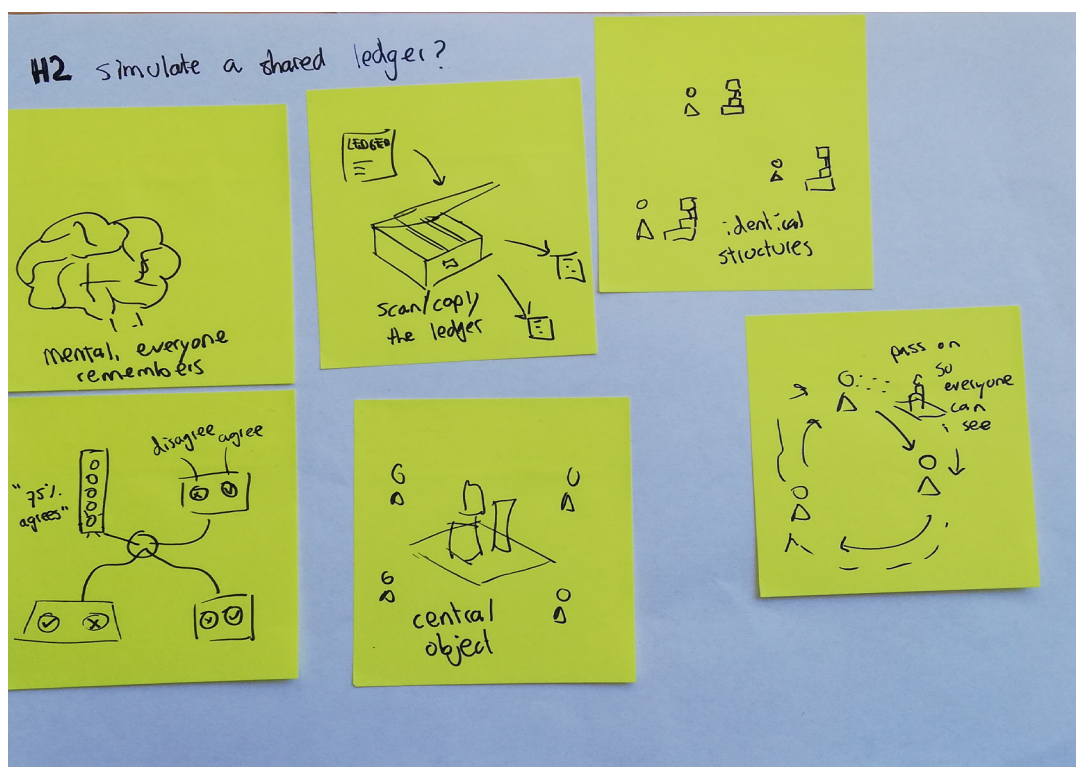 H2 simulate a shared ledger?
mental, everyone
remembers
LEDGER
scan/copy
the ledger
identical
structures
disagree agree
"75%
agrees"
central
object
pass on
so
everyone
can
see